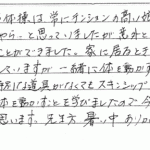 の体操は、常にテンションの高い娘
やら。と思っていましたが意外と
ことができました。家に居るとき
っていますが一緒に体を動かす
別な道具がなくてもスキンシップ
体を動かすことを学びましたので今
思います。先生方暑い中ありが